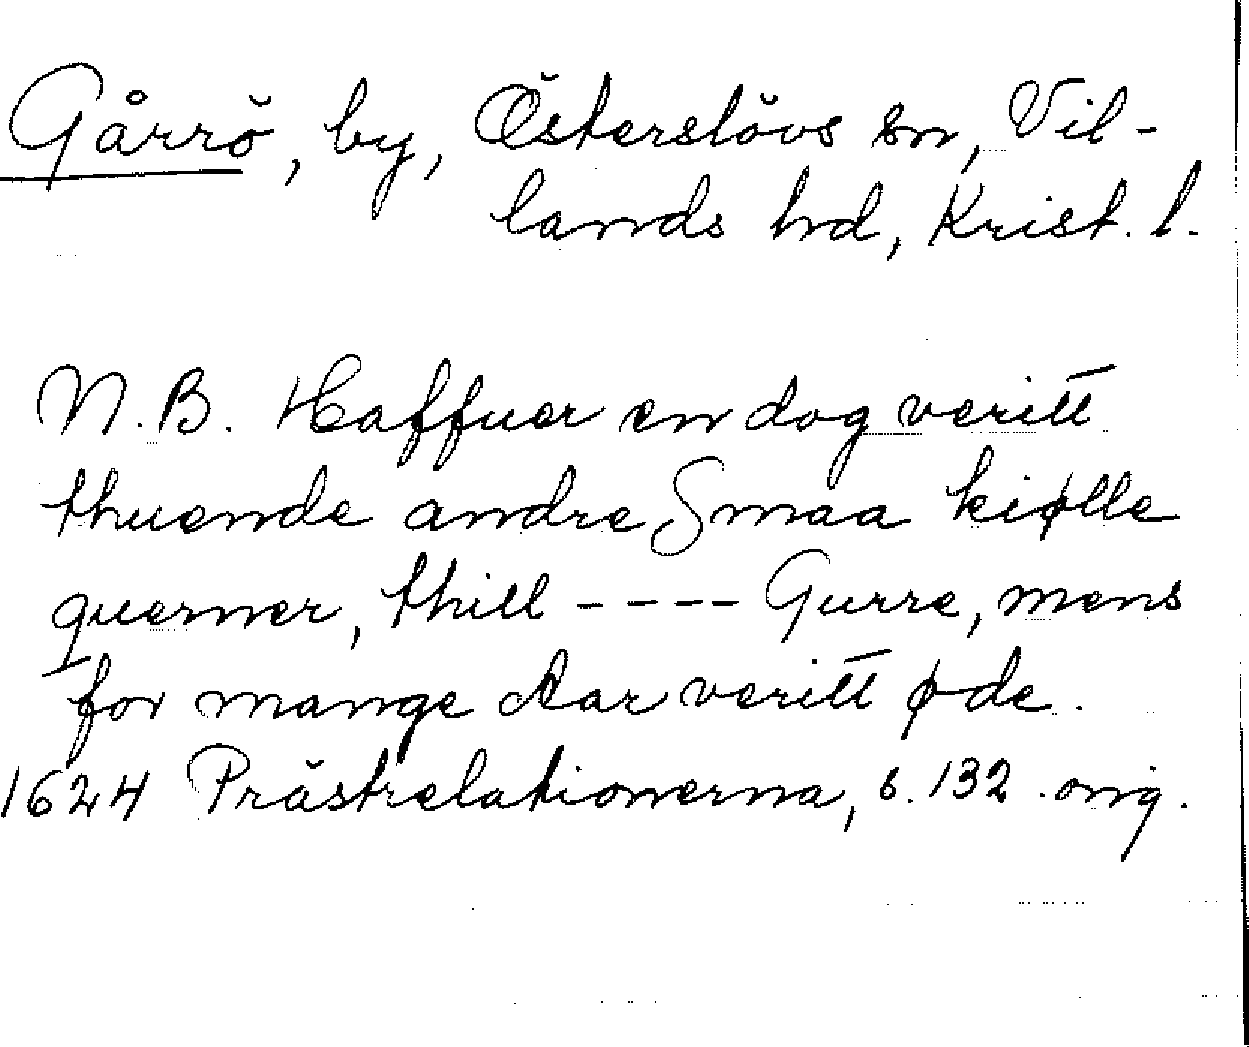 Gårrö, by, Österslövs sn, Vil-
lands hd, Krist. l.
N.B. Haffuer en dog veritt
thuende andre Smaa kiølle
querner, thill ---- Gurre, mens
for mange Aar veritt øde.
1624 Prästrelationerna, s. 132 orig.